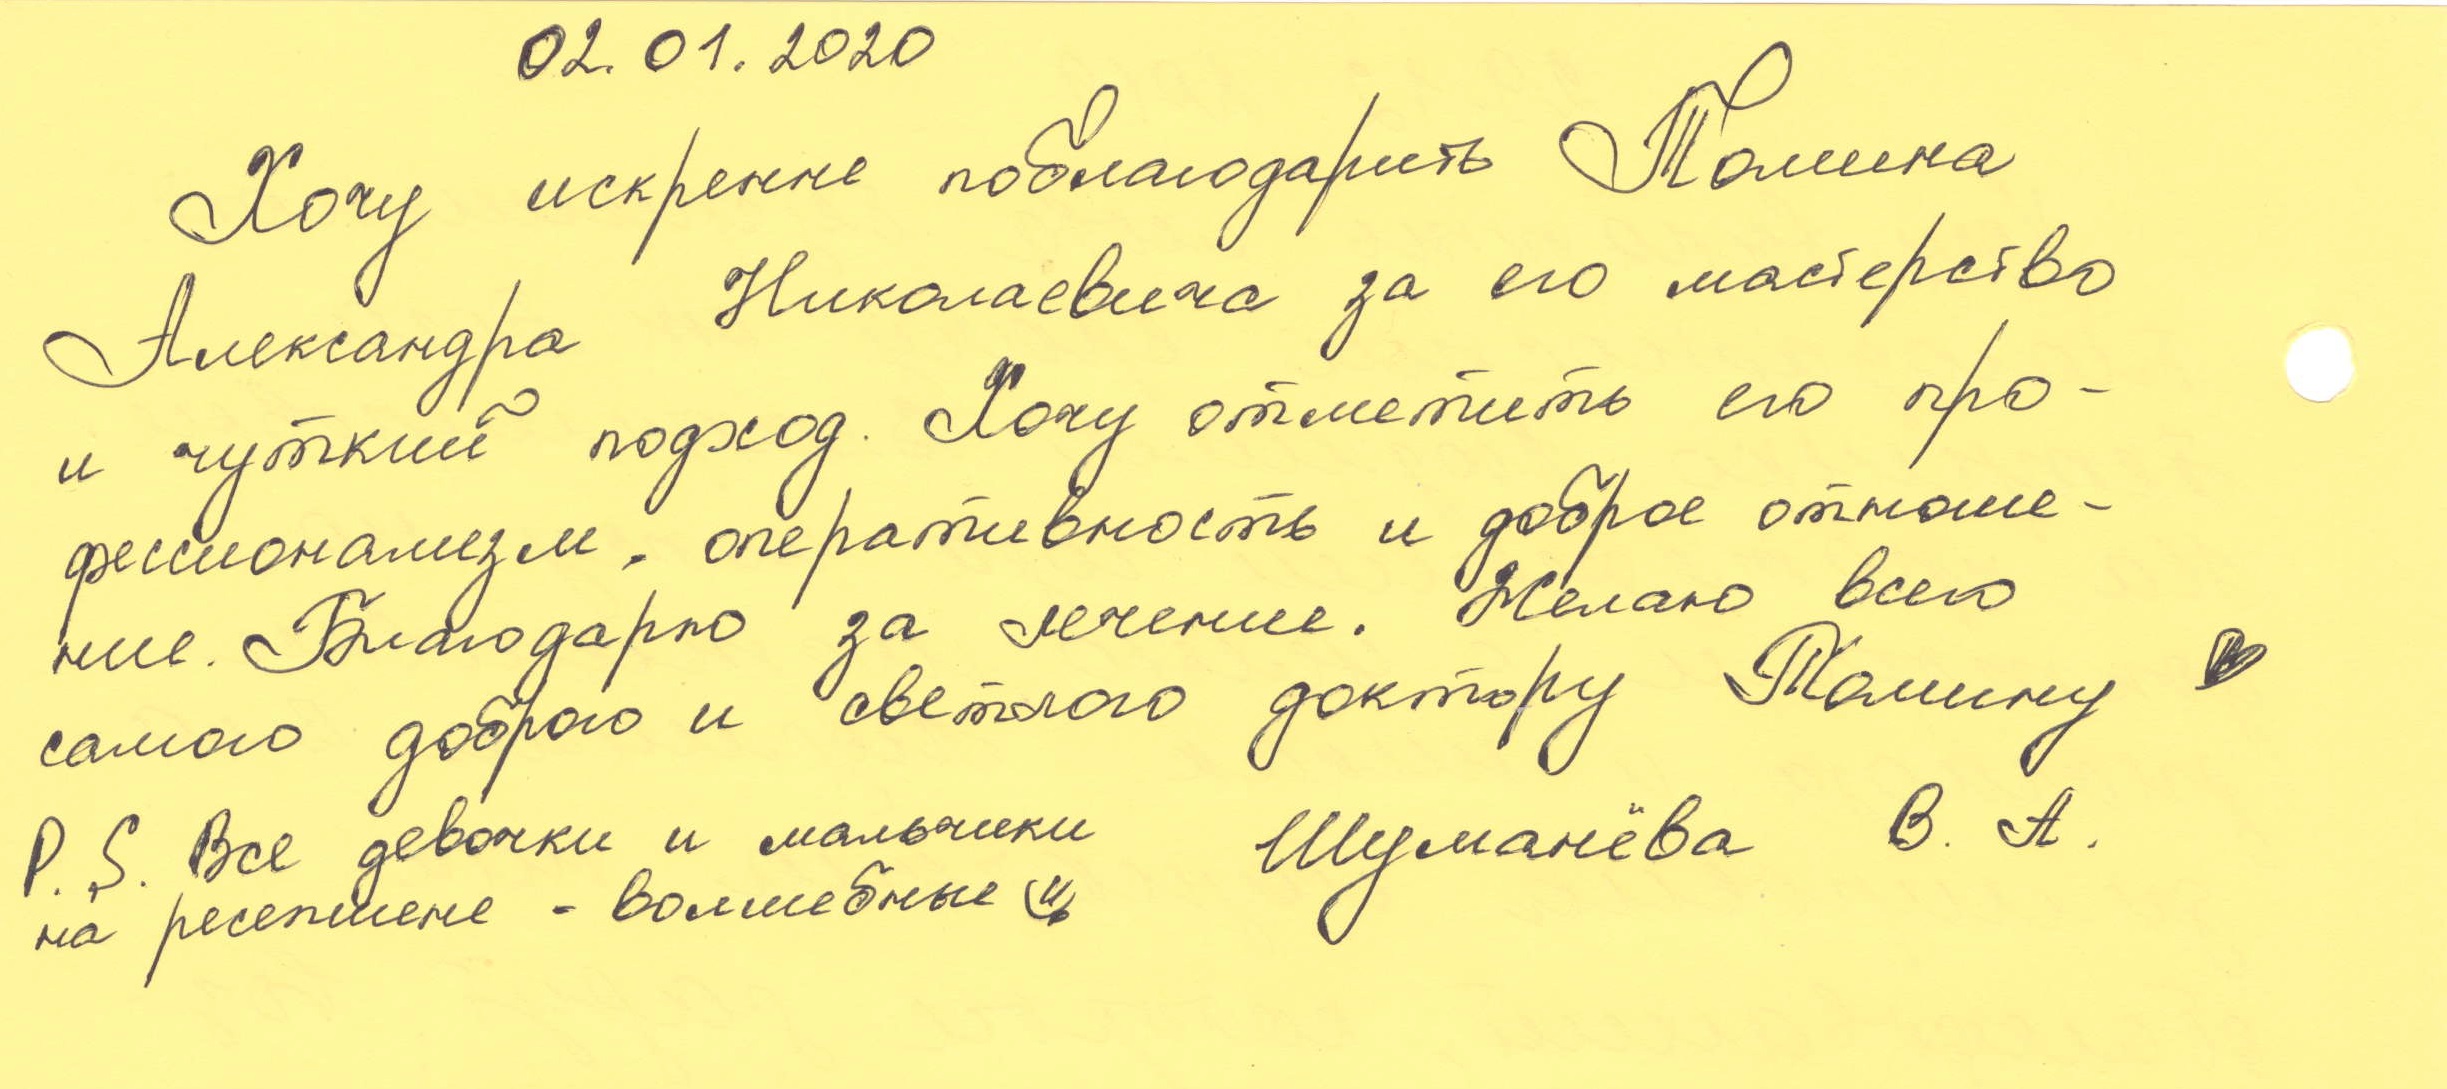 02.01.2020
Хочу искренне поблагодарить Томина
Александра Николаевича за его мастерство
и чуткий подход. Хочу отметить его про-
фессионализм, оперативность и доброе отноше-
ние. Благодарю за лечение. Желаю всего
самого доброго и светлого доктору Томину
P.S. Все девочки и мальчики Шуманёва В. А.
на ресепшене - волшебные